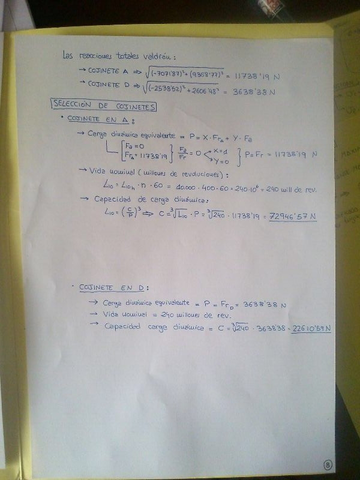 Las reacciones totales valdrán:
→ COJINETE A → √(-7071'37)² + (9369'77)² = 11738'19 N
→ COJINETE D → √(-2538'52)² + 2606'48² = 3638'38 N
SELECCIÓN DE COJINETES
• COJINETE EN A:
→ Carga dinámica equivalente = P = X · Fr + Y · Fa
[Fa = 0
Fr = 11738'19 N] Fa/Fr = 0 < X=1 Y=0 } P = Fr = 11738'19 N
→ Vida nominal (millones de revoluciones):
L10 = L10h · n · 60 = 10.000 · 400 · 60 = 240·10⁶ = 240 mill de rev.
→ Capacidad de carga dinámica:
L10 = (C/P)³ ⇒ C = ³√L10 · P = ³√240 · 11738'19 = 72946'57 N
• COJINETE EN D:
→ Carga dinámica equivalente = P = FrD = 3638'38 N
→ Vida nominal = 240 millones de rev.
→ Capacidad carga dinámica = C = ³√240 · 3638'38 = 22610'84 N
8